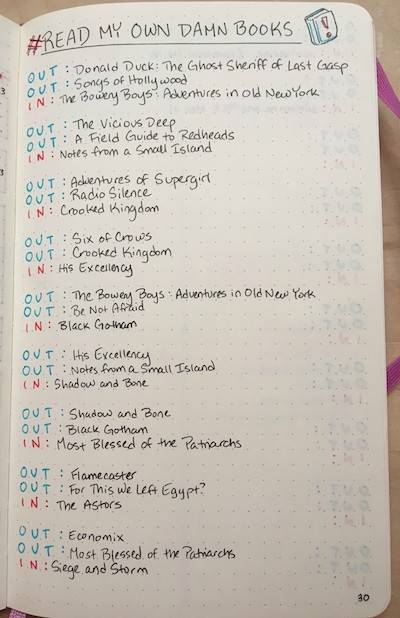 #READ MY OWN DAMN BOOKS
OUT : Donald Duck: The Ghost Sheriff of Last Gasp
OUT : Songs of Hollywood
IN : The Bowery Boys: Adventures in Old New York
OUT : The Vicious Deep
OUT : A Field Guide to Redheads
IN : Notes from a Small Island
OUT : Adventures of Supergirl
OUT : Radio Silence
IN : Crooked Kingdom
OUT : Six of Crows
OUT : Crooked Kingdom
IN : His Excellency
OUT : The Bowery Boys: Adventures in Old New York
OUT : Be Not Afraid
IN : Black Gotham
OUT : His Excellency
OUT : Notes from a Small Island
IN : Shadow and Bone
OUT : Shadow and Bone
OUT : Black Gotham
IN : Most Blessed of the Patriarchs
OUT : Flamecaster
OUT : For This We Left Egypt?
IN : The Astors
OUT : Economix
OUT : Most Blessed of the Patriarchs
IN : Siege and Storm
30